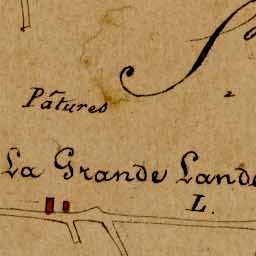 Pâtures
2
La Grande Lande
L.